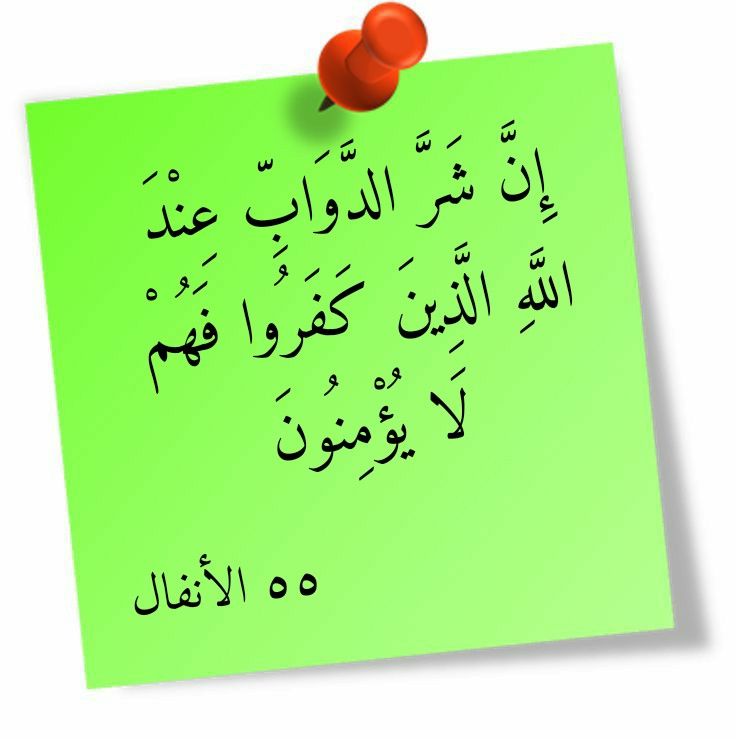 إِنَّ شَرَّ الدَّوَابِّ عِنْدَ
اللَّهِ الَّذِينَ كَفَرُوا فَهُمْ
لَا يُؤْمِنُونَ
٥٥ الأنفال